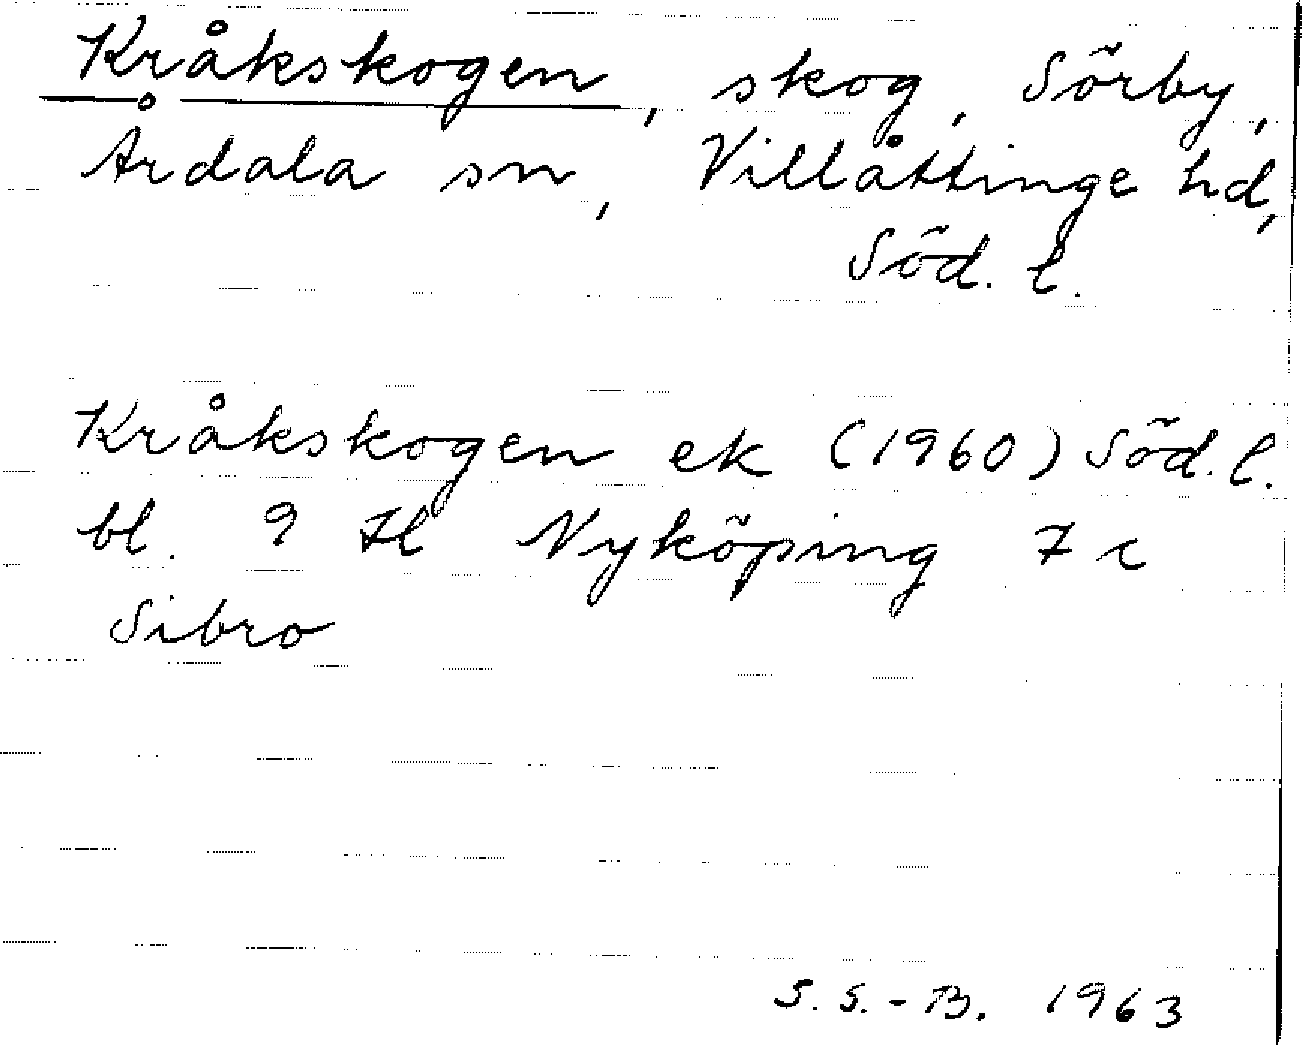 Kråkskogen, skog, Sörby,
Årdala sn, Villåttinge hd,
Söd. l.
Kråkskogen ek (1960) Söd. l.
bl. 9 Hl Nyköping 7 c
Sibro
S. S.-B. 1963